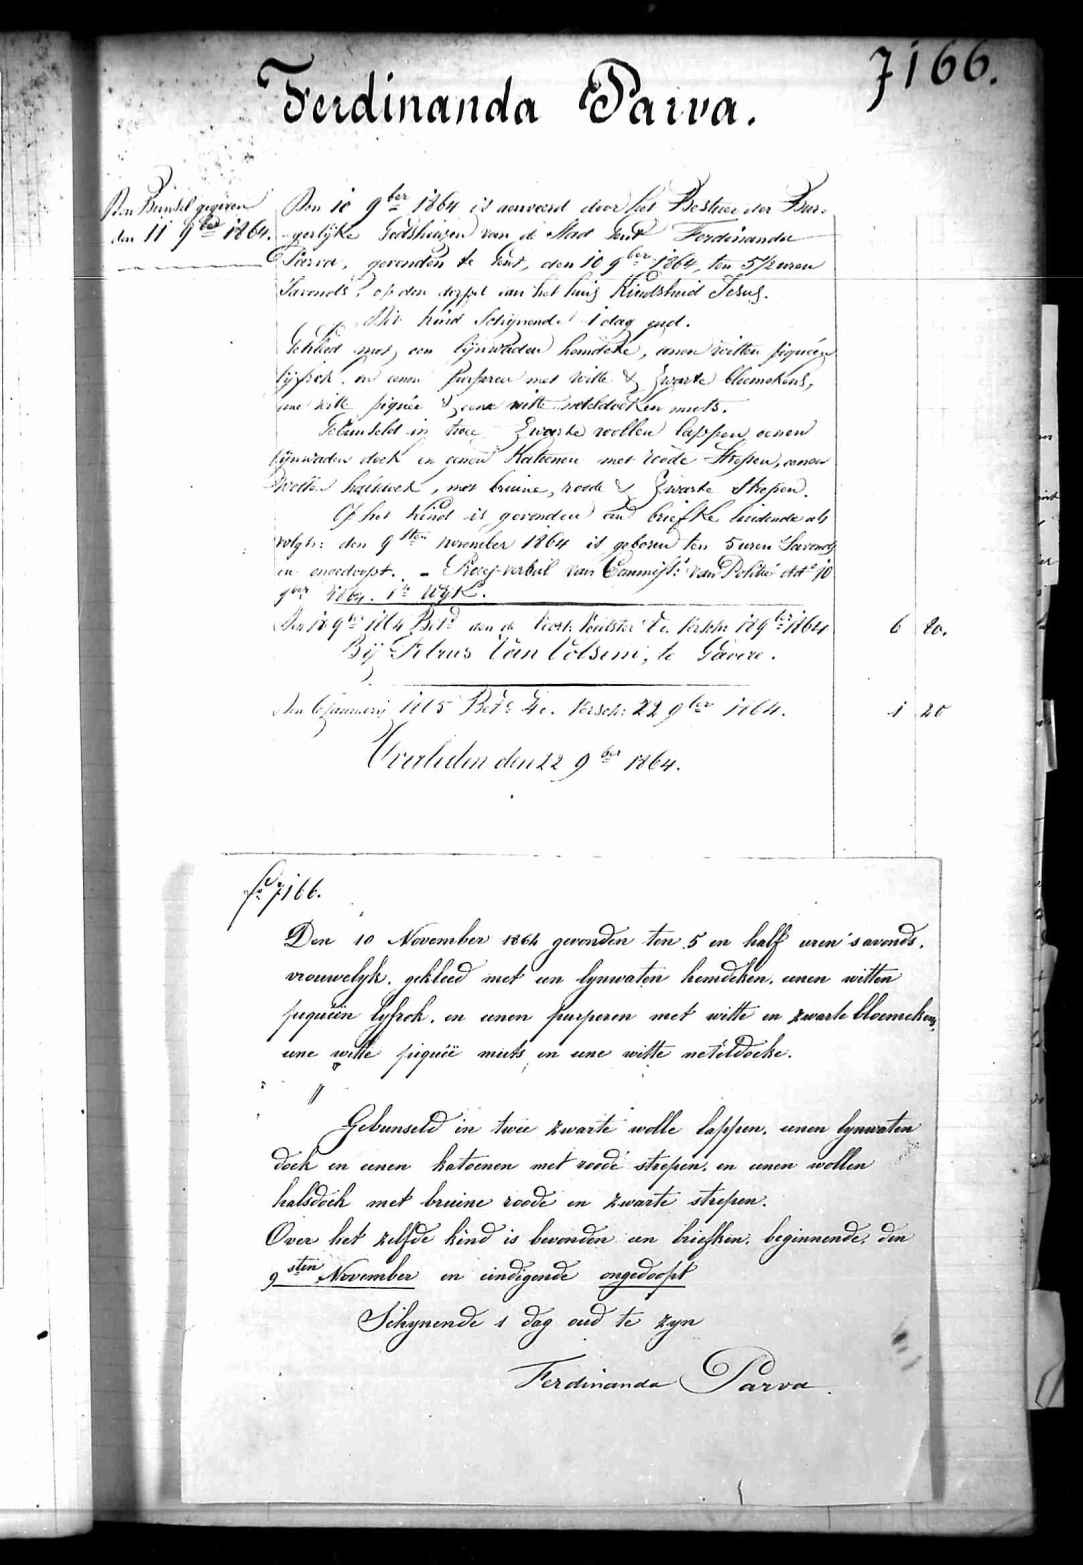 7166.
Ferdinanda Parva.
Den Bunsel gegeven
den 11 9ber 1864.
Den 10 9ber 1864 is aenveerd door het Bestier der Bur-
gerlijke Godshuizen van de Stad Gent Ferdinanda
Parva, gevonden te Gent, den 10 9ber 1864, ten 5 1/2 uren
Savonds, op den dorpel van het huis Kindsheid Jesus.
Dit kind Schijnende 1 dag oud.
Gekleed met een lijnwaden hemdeke, eenen witten piqueën
lijfrok, en eenen purperen met witte & zwarte bloemekens,
eene witte piquée & eene witte neteldoeken muts.
Gebunseld in twee zwarte wollen lappen eenen
lijnwaden doek en eenen Katoenen met roode Strepen, eenen
wollen halsdoek, met bruine, roode & zwarte Strepen.
Op het kind is gevonden een briefke luidende als
volgt: den 9sten november 1864 is geboren ten 5 uren Savonds
en ongedoopt. - Proces-verbal van Commiss: van Politie dd° 10
9ber 1864. 1e Wyk.
Den 12 9ber 1864 Betd aen de 6 80.
Bij Petrus Van Volsem, te Gavere.
Den 6 January 1865 Betd 4e. Versch: 22 9ber 1864. 1 20
Overleden den 22 9ber 1864.
7166.
Den 10 November 1864 gevonden ten 5 en half uren 's avonds,
vrouwelyk, gekleed met een lynwaten hemdeken, eenen witten
piqueën lyfrok, en eenen purperen met witte en zwarte bloemekens,
eene witte piqueë muts, en eene witte neteldoeke.
"
Gebunseld in twee zwarte wolle lappen, eenen lynwaten
doek en eenen katoenen met roode strepen, en eenen wollen
halsdoek met bruine roode en zwarte strepen.
Over het zelfde kind is bevonden een briefken, beginnende, den
9sten November en eindigende ongedoopt
Schynende 1 dag oud te zyn
Ferdinanda Parva.